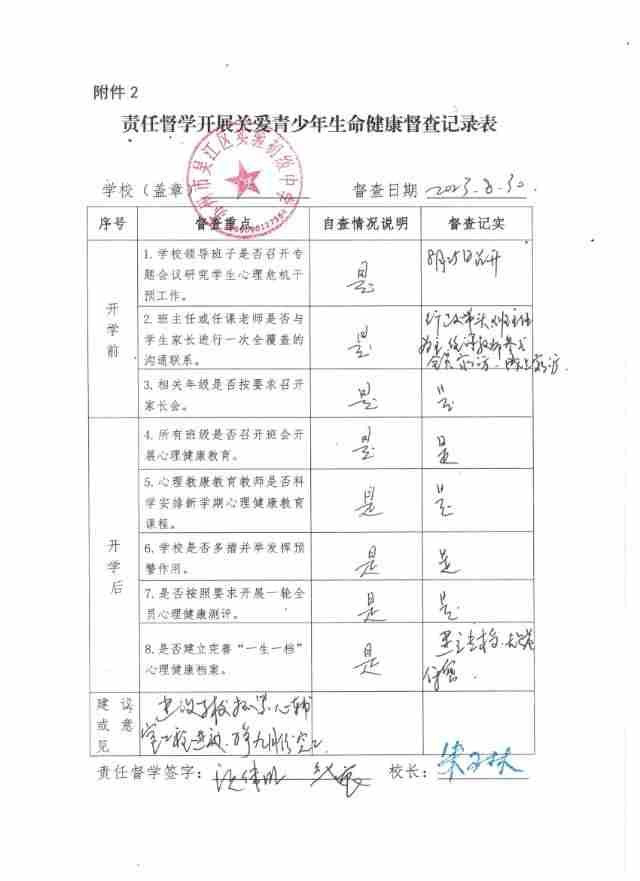 附件2
责任督学开展关爱青少年生命健康督查记录表
苏州市吴江区实验初级中学
学校（盖章） 督查日期 2023.8.30.
序号 督查重点 自查情况说明 督查记实
开学前
1.学校领导班子是否召开专
题会议研究学生心理危机干
预工作。
是 8月25日召开
2.班主任或任课老师是否与
学生家长进行一次全覆盖的
沟通联系。
是
3.相关年级是否按要求召开
家长会。
是 是
开学后
4.所有班级是否召开班会开
展心理健康教育。
是 是
5.心理教康教育教师是否科
学安排新学期心理健康教育
课程。
是 是
6.学校是否多措并举发挥预
警作用。
是 是
7.是否按照要求开展一轮全
员心理健康测评。
是 是
8.是否建立完善“一生一档”
心理健康档案。
是
建议
或意
见
责任督学签字： 校长：